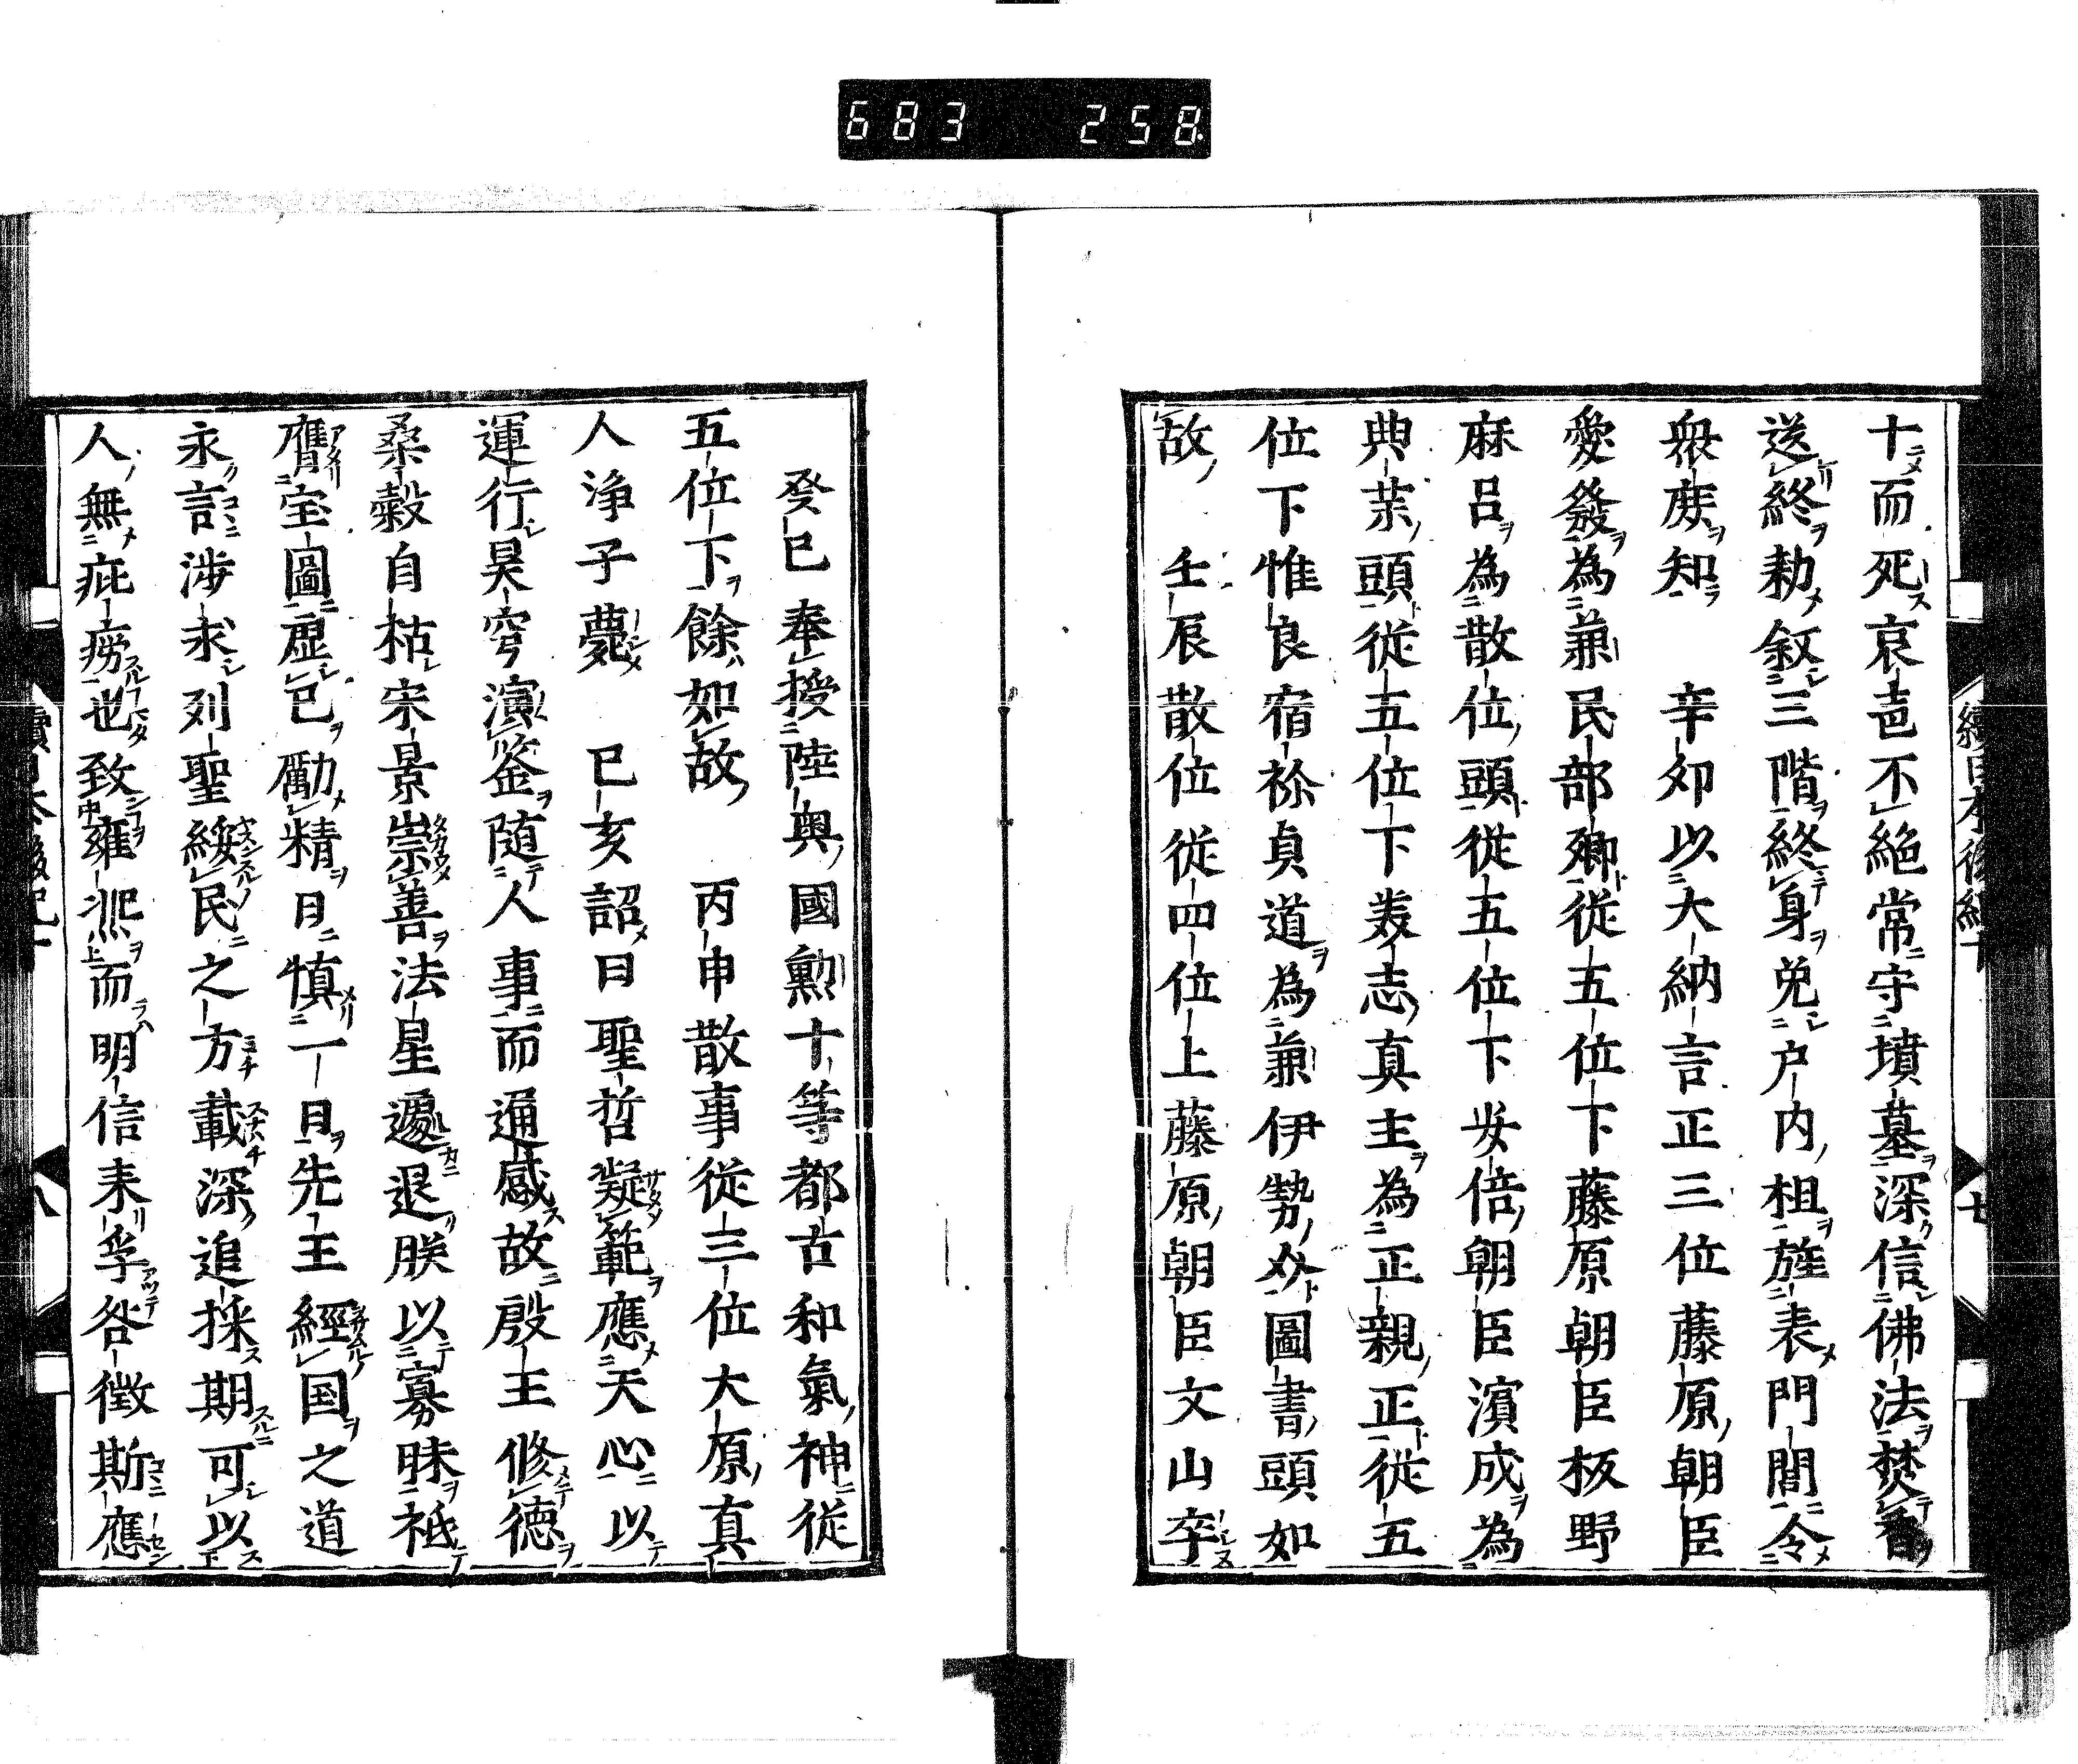 683 258
十而死哀毛不絶常守墳墓深信佛法焚香
送終勅叙三階終身免戸内租旌表門閭令
衆庻知　辛夘以大納言正三位藤原朝臣
愛發為兼民部卿従五位下藤原朝臣板野
麻呂為散位頭従五位下安倍朝臣濱成為
典薬頭従五位下善志真主為正親正従五
位下惟良宿祢貞道為兼伊勢介圖書頭如
故　壬辰散位従四位上藤原朝臣文山卒
七
癸巳奉授陸奥國勲十等都古和氣神従
五位下餘如故　丙申散事従三位大原真
人浄子薨　已亥詔曰聖哲凝範應天心以
運行昊穹演鉴随人事而通感故殷王修徳
桑穀自枯宋景崇善法星遽退朕以寡昧祗
膺宝圖虚已勵精日慎一日先王經国之道
永言渉求列聖綏民之方載深追採期可以
人無疵癘也致雍熙而明信未孚咎徴斯應
八